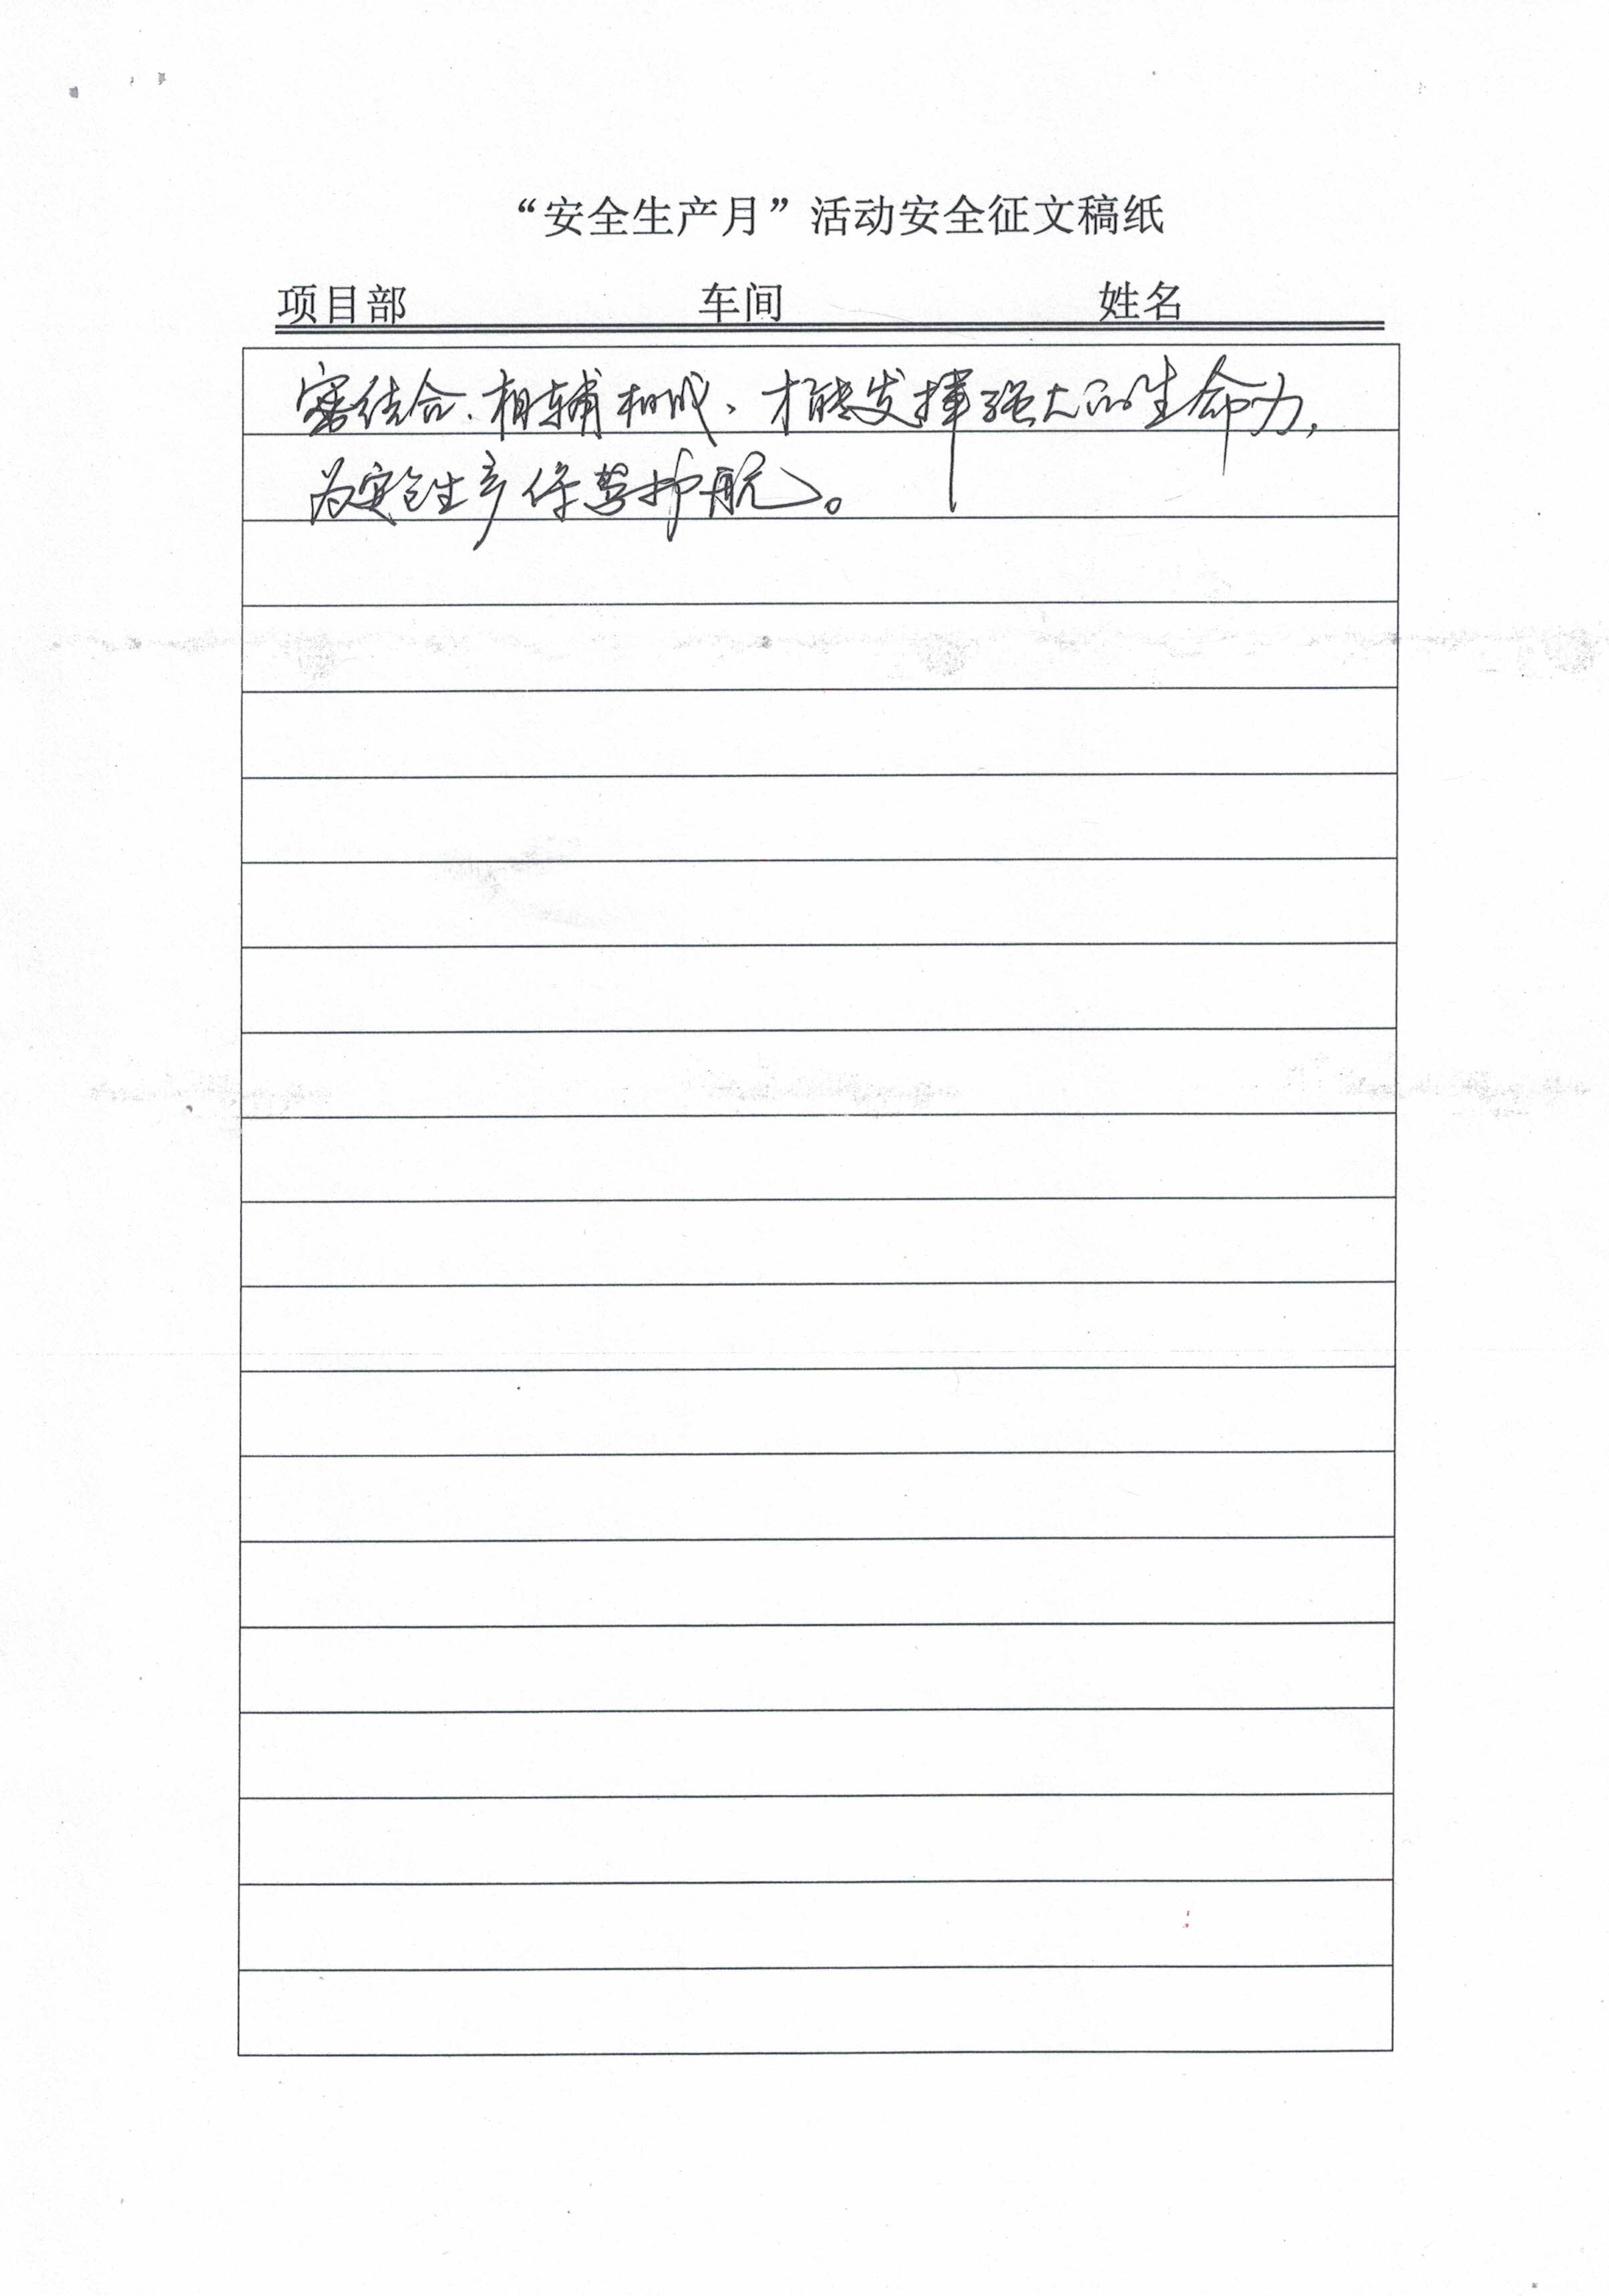 “安全生产月”活动安全征文稿纸
项目部 车间 姓名
密结合、相辅相成、才能发挥强大的生命力,
为安全生产保驾护航。